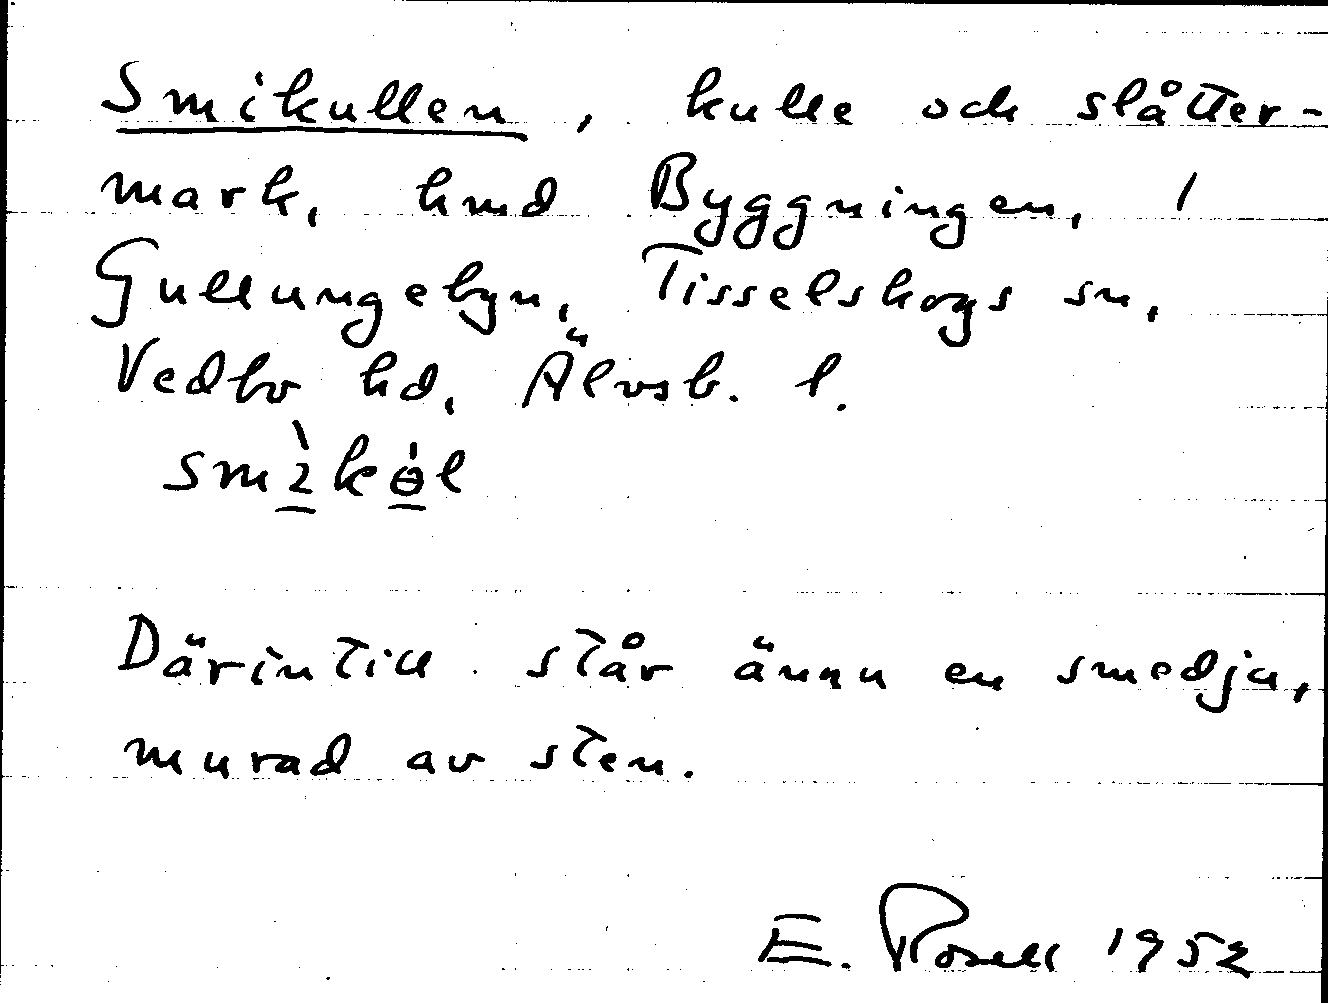 Smikullen, kulle och slåtter-
mark, hmd Byggningen, 1
Gullungebyn, Tisselskogs sn,
Vedbo hd, Älvsb. l.
Därintill står ännu en smedja,
murad av sten.
E. Rosell 1952